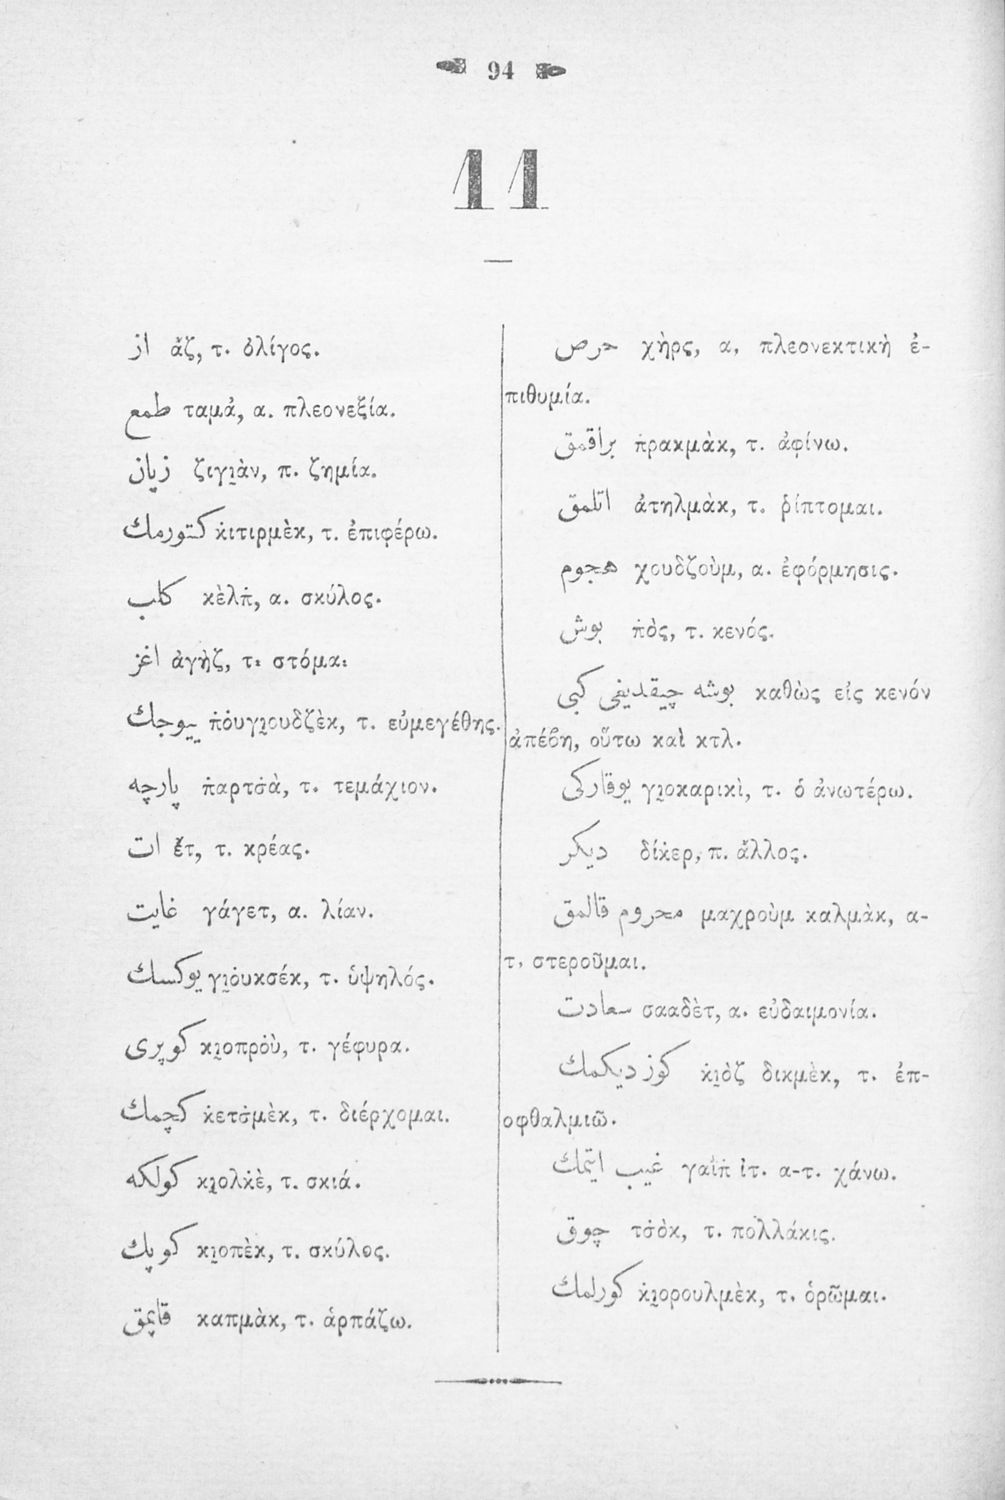 94
11
از ἄζ, τ. ὀλίγος.
طمع ταμἀ, α. πλεονεξία.
زیان ζιγι̮ὰν, π. ζημία.
كتورمك κ̇ιτιρμὲκ, τ. ἐπιφέρω.
كلب κὲλπ̇, α. σκύλος.
اغز ἀγὴζ, τ. στόμα.
بیوجك π̇όυγι̮ουδζὲκ, τ. εὐμεγέθης.
پارچه π̇αρτσ̇ὰ, τ. τεμάχιον.
ات ἔτ, τ. κρέας.
غایت γάγετ, α. λίαν.
یوكسك γι̮όυκσέκ, τ. ὑψηλός.
كوپری κι̮οπρὸὺ, τ. γέφυρα.
كچمك κ̇ετσ̇μὲκ, τ. διέρχομαι.
كولكه κι̮ολκ̇ὲ, τ. σκιά.
كوپك κι̮οπὲκ, τ. σκύλος.
قاپمق καπμὰκ, τ. ἁρπάζω.
حرص χὴρς, α, πλεονεκτικὴ ἐ-
πιθυμία.
براقمق π̇ρακμὰκ, τ. ἀφίνω.
اتلمق ἀτηλμὰκ, τ. ῥίπτομαι.
هجوم χουδζοὺμ, α. ἐφόρμησις.
بوش π̇ὸς, τ. κενός.
بوشه چیقدیغی كبی καθὼς εἰς κενόν
ἀπέβη, οὕτω καὶ κτλ.
یوقاركی γι̮οκαρικὶ, τ. ὁ ἀνωτέρω.
دیكر δίκ̇ερ, π. ἄλλος.
محروم قالمق μαχροὺμ καλμὰκ, α-
τ, στεροῦμαι.
سعادت σααδὲτ, α. εὐδαιμονία.
كوز دیكمك κ̇ι̮ὸζ δικμὲκ, τ. ἐπ-
οφθαλμιῶ.
غیب ایتمك γαΐπ̇ ἰτ. α-τ. χάνω.
چوق τσ̇ὸκ, τ. πολλάκις.
كورلمك κ̇ι̮ορουλμὲκ, τ. ὁρῶμαι.